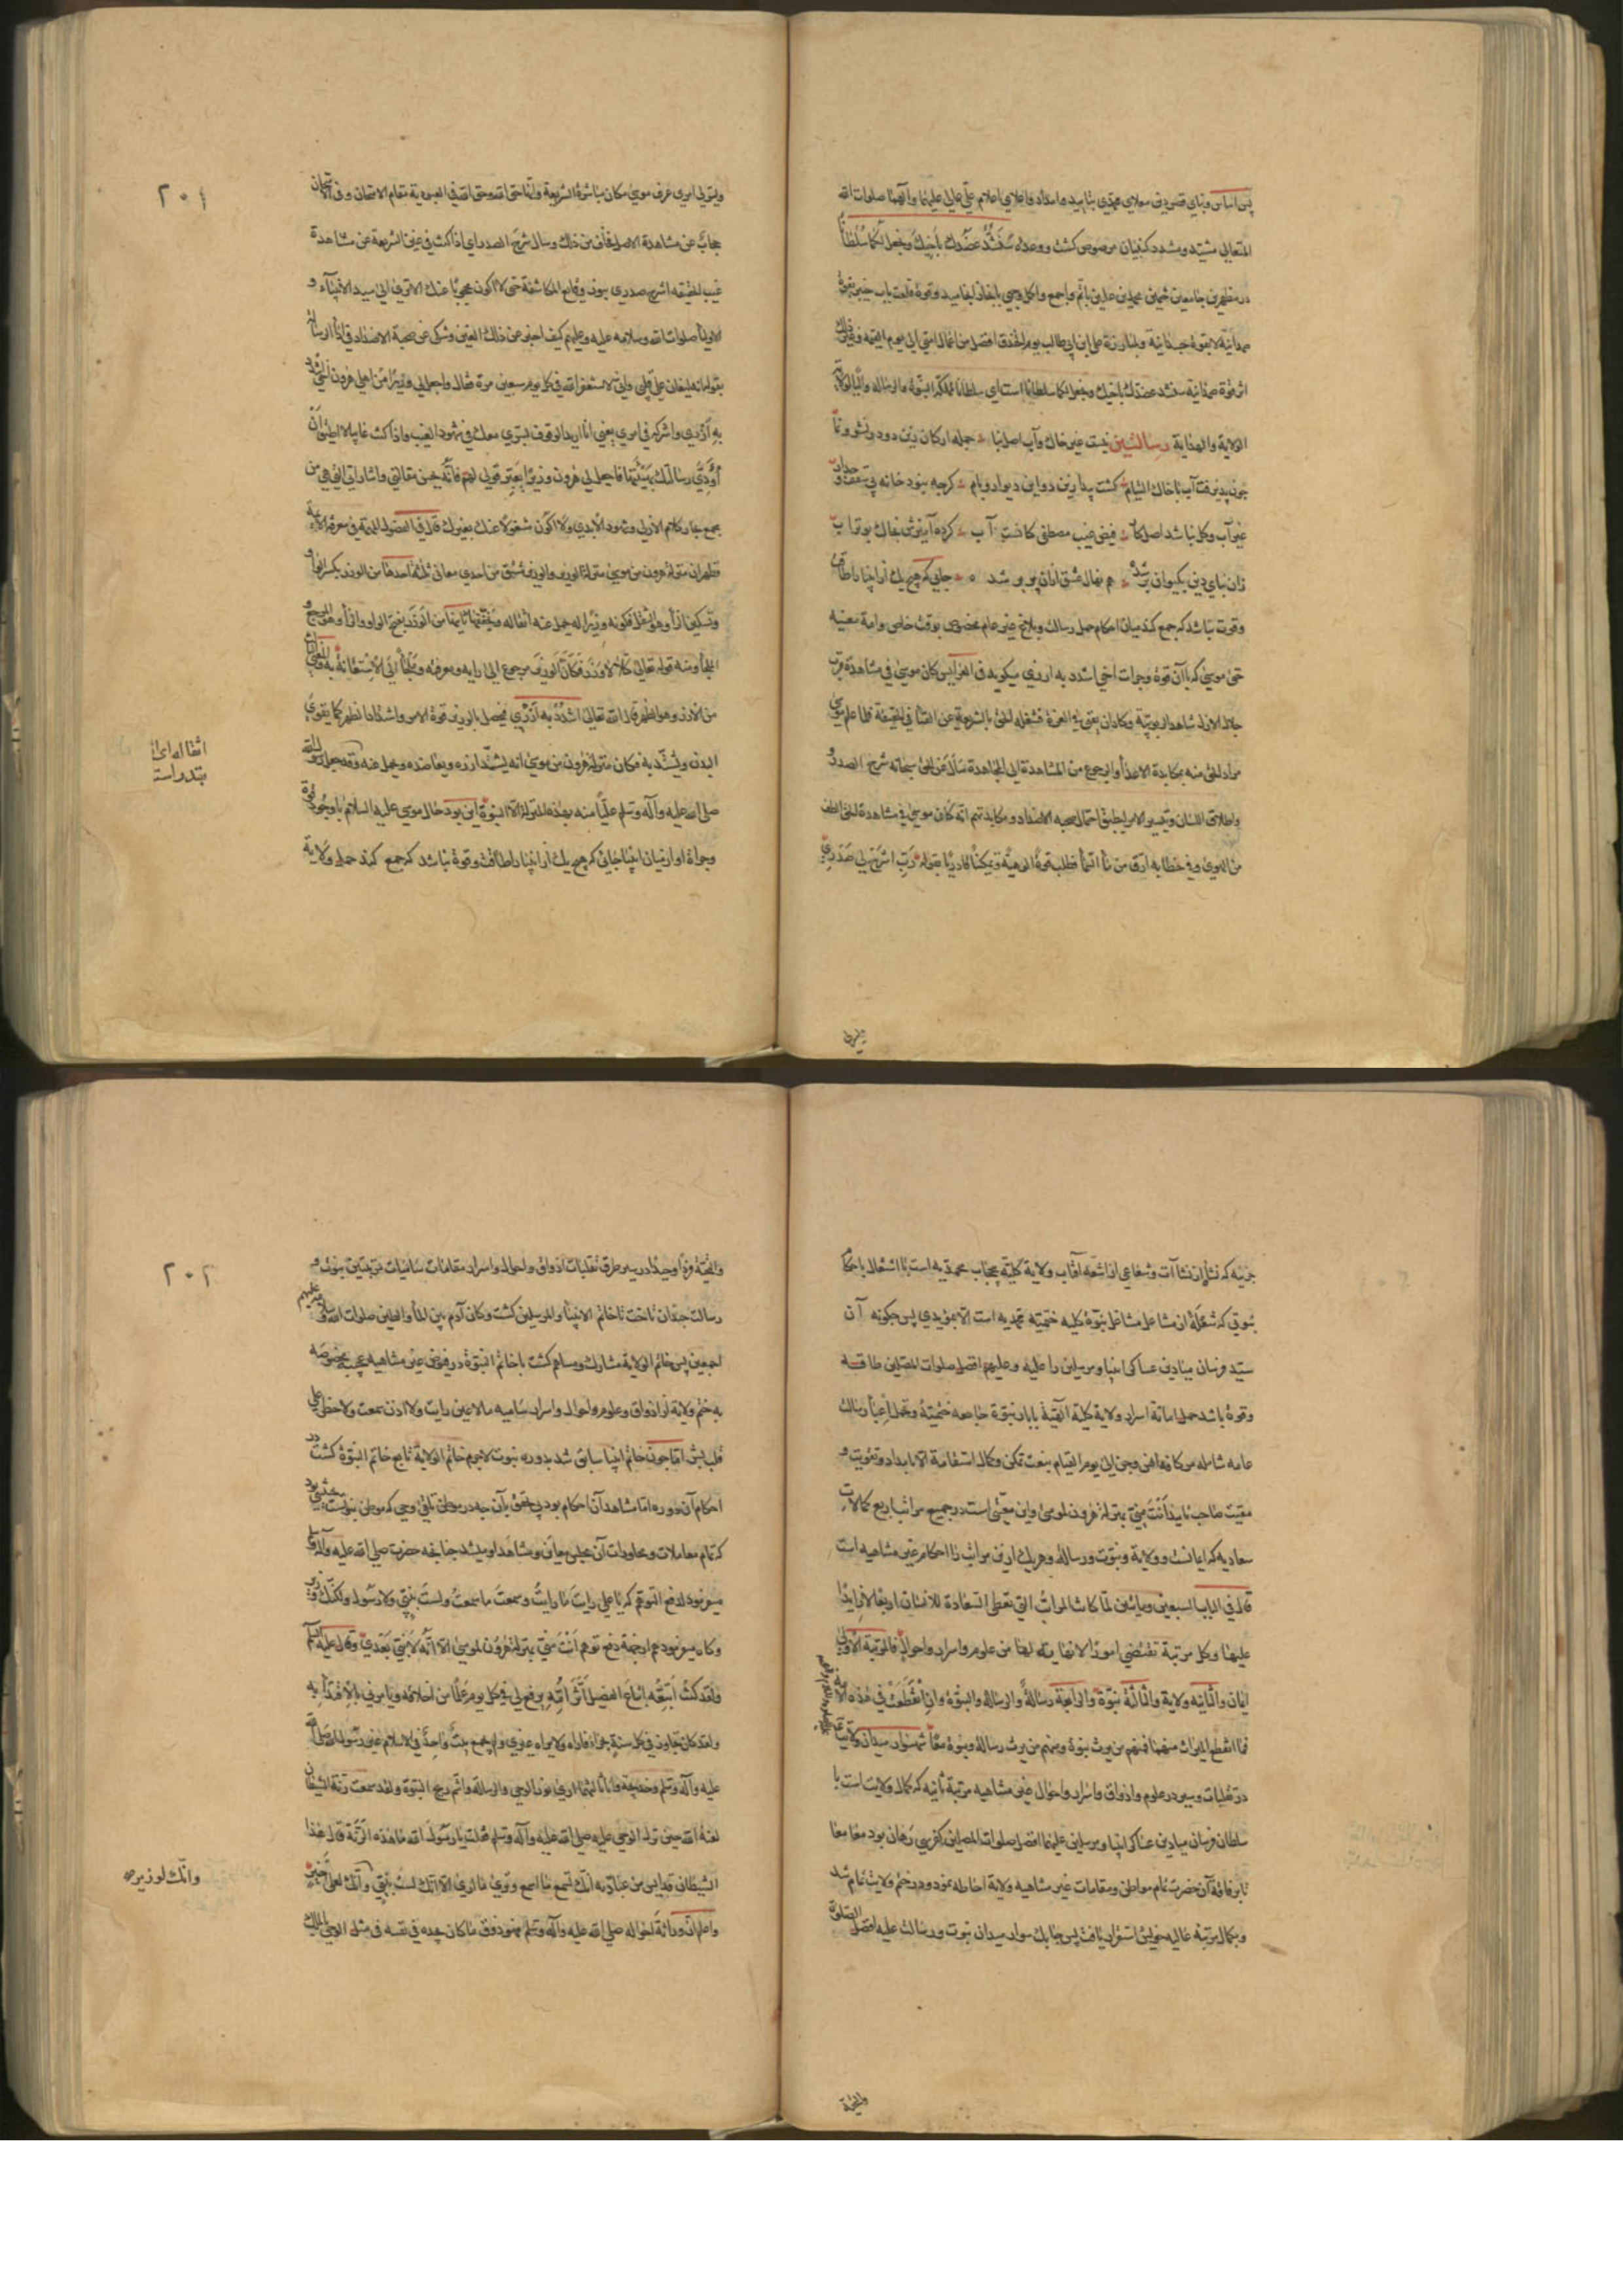 پس اساس و بنای قصر دین معلای محمدی بتایید و امداد و اعلای اعلام علی عالی علیهما و آلهما صلوات الله
المتعالی مشید و مشدد کبنیان مرصوص کشت و وعده سَنَشُدُّ عَضُدَكَ بِأَخِيكَ وَنَجْعَلُ لَكُمَا سُلْطَانًا
در مظهرین جامعین ختمین محمدین علیین باتم و اجمع و اکمل وجهی
صمدانیة لا بقوة جسدانیة ولمبارزة علی ابن ابی طالب یوم الخندق افضل من اعمال امتی الی یوم القیمة
اثر قوة صمدانیة سنشد عضدك باخیك ونجعل لکما سلطانا است ای سلطانا مملکة النبوة والرسالة
الولایة والهدایة رسالتین نیست غیر خاك و آب اصل بنا جمله ارکان دین
چون پذیرفت آب با خاك التیام کشت پیدا زین دو این دیوار و بام کرچه نبود خانه بی سقف و
غیر آب و کل نباشد اصل کار فیض غیب مصطفی کانست آب کرده آمیزش بخاك بوتراب
زان بنای دین بکیوان بر شد هم نهال عشق ازان پر بر شد جایی که هیچ یك از انبیا را طاقت
و قوت نباشد که جمع کند میان احکام حمل رسالت و بلاغ غیر عام مخصوص بوقت خاص و امة معینه
حتی موسی که با آن قوة و جرات اخی اشدد به ازری میکوید فی العرایس کان موسی فی مشاهدة قرب
جلال الازل شاهد الربوبیة وکاد ان یفنی فی العزة فشغله الحق بالشریعة عن الفناء فی الحقیقة فلما علم موسی
مراد الحق منه بمکابدة الاعداء والرجوع من المشاهدة الی المجاهدة سأل عن الحق سبحانه شرح الصدر و
اطلاق اللسان وتیسیر الامر لیطیق احتمال صحبه الاضداد و مکابدتهم انه کان موسی فی مشاهدة الحق الطف
من الهوی وفی خطابه ارق من ماء السماء فطلب قوة الهیة وتمکینا قادریا بقوله رَبِّ اشْرَحْ لِی صَدْرِی
ویسّر لی
۲۰۱
ویسر لی امری عرف موسی مکان مباشرة الشریعة وانها حق الله وحق الله فی العبودیة مقام الامتحان وفی الامتحان
حجاب عن مشاهدة الاصل فخاف من ذلك وسال شرح الصدر ای اذا کنت فی غیم الشریعة عن مشاهدة
غیب الحقیقه اشرح صدری بنور وقایع المکاشفة حتی لا اکون محجوبا عنك الا تری الی سید الانبیاء و
الاولیاء صلوات الله وسلامه علیه وعلیهم کیف اخبر عن ذلك الغین وشکی عن صحبة الاضداد فی اداء الرسالة
بقوله انه لیغان علی قلبی وانی لاستغفر الله فی کل یوم سبعین مرة فقال واجعل لی وزیرا من اهلی هرون اخی اشدد
بِهِ أَزْرِی واشرکه فی امری یعنی انا ارید الوقوف بسری معك فی شهود الغیب واذا کنت غایبا لا اطیق ان
أُؤَدِّی رسالتك بهیئتها فاجعل لی هرون وزیرا یعبر قولی لهم فانه یحسن مقالتی واشاراتی التی هی من
بحر کلام الازلی وشهود الابدی ولا اکون مشغولا عنك بغیرك قال فی الفصول المهمة فی معرفة الائمة
فظهر ان منزلة هرون من موسی منزلة الوزیر والوزیر مشتق من احدی معانی ثلثة احدها من الوزر بکسر الواو
وتسکین الزاء وهو الثقل فکونه وزیرا له یحمل عنه اثقاله ویخففها ثانیها من الوَزَر بفتح الواو والزاء وهو المرجع و
الملجأ ومنه قوله تعالی کَلَّا لَا وَزَرَ فکأن الوزیر مرجوع الی رایه ومعرفته ویلجأ الی الاستعانة به والمعنی الثالث
من الازر وهو الظهر قال الله تعالی اشْدُدْ بِهِ أَزْرِی فیحصل بالوزیر قوة الامر واشتداد الظهر کما یقوی
البدن ویشتد به فکان منزلة هرون من موسی انه یشد ازره ویعاضده ویحمل عنه وقد جعل رسول الله
صلی الله علیه وآله وسلم علیا منه بهذه المنزلة الا النبوة این بود حال موسی علیه السلام با وجود قوة
وجراة او از میان انبیا جایی که هیچ یك از انبیا را طاقت وقوة نباشد که جمع کند حمل ولایة
اثقاله ای
بتدراست
جزئیه که نشأ از نشاآت و شعاعی از اشعه آفتاب ولایة کلیه بجناب محمدیه است با اشتعال با حکام
نبوتی که شعله از مشاعل مشاعل نبوة کلیه ختمیه محمدیه است الا بمؤیدی پس چکونه آن
سید فرسان میادین عساکر انبیا و مرسلین را علیه وعلیهم افضل صلوات المصلین طاقه
وقوة باشد حمل امانة اسرار ولایة کلیه الهیة با بار نبوة جامعه ختمیه وتحمل اعباء رسالت
عامه شامله مر کافه انس و جن الی یوم القیام بنعت تمکن وکمال استقامة الا بامداد وتقویت و
معیت صاحب تایید أَنْتَ مِنِّی بمنزلة هرون لموسی واین معنی است در جمیع مراتب اربع کمالات
سعادیه که ایمانست و ولایة و نبوت و رسالة و هر یك ازین مراتب را احکام غیر متناهیه است
قال فی الباب السبعین ومایتین لما کانت المراتب التی تعطی السعادة للانسان اربعا لا زایدا
علیها وکل مرتبة تقتضی امورا لا نهایة لها من علوم واسرار واحوال فالمرتبة الاولی
ایمان والثانیه ولایة والثالثة نبوّة والرابعة رسالة والرسالة والنبوة وان انقطعت فی هذه الامة
فما انقطع المیراث منهما فمنهم من یرث نبوة ومنهم من یرث رسالة ونبوة معا شهسوار میدان ولایت
در تقلبات و سیر در علوم و اذواق و اسرار و احوال غیر متناهیه مرتبة ثانیه که کمال ولایت است با
سلطان فرسان میادین عساکر انبیا و مرسلین علیهما افضل صلوات المصلین کفرسی رهان بود معا معا
تا بر فاقة آن حضرت تمام مواطن و مقامات غیر متناهیه ولایة احاطه نمود و در ختم ولایت تمام شد
وبکمال مرتبه عالیه خویش استقرار یافت پس چابك سوار میدان نبوت و رسالت علیه افضل الصلوة
والتحیة
۲۰۲
والتحیة فردا وحیدا در سیر طرق تقلبات اذواق و احوال و اسرار مقامات سامیات مرتبتین نبوت و
رسالت چندان تاخت تا خاتم الانبیا والمرسلین کشت وکان آدم بین الماء والطین صلوات الله وسلامه علیهم
اجمعین پس خاتم الولایة مشارك و مساهم کشت با خاتم النبوة در فیوض غیر متناهیه مختصه
به ختم ولایة از اذواق وعلوم واحوال واسرار سامیه ما لا عین رات ولا اذن سمعت ولا خطر علی
قلب بشر اما چون خاتم انبیا سابق شد بدوره نبوت لاجرم خاتم الولایة تابع خاتم النبوة کشت در
احکام آن دوره اما مشاهد آن احکام بود بی تلقی بآن چه در موطن تلقی وحی که موطن نبوتست
که تمام معاملات و محاورات آن مجلس معاین و مشاهد او میشد چنانچه حضرت صلی الله علیه وآله وسلم
میفرمود لدفع التوهم که یا علی رایت ما رایت وسمعت ما سمعت ولست بنبی ولا رسول ولکنك وزیر
وکاه میفرمود هم از جهة دفع توهم أَنْتَ مِنِّی بمنزلة هرون لموسی الا انه لا نبی بعدی وقال علیه السلم
ولقد کنت اتبعه اتباع الفصیل اثر امه یرفع لی فی کل یوم علما من اخلاقه ویامرنی بالاقتداء به
ولقد کان یجاور فی کل سنة بحراء فاراه ولا یراه غیری ولم یجمع بیت واحد فی الاسلام غیر رسول الله صلی الله
علیه وآله وسلم وخدیجة وانا ثالثهما اری نور الوحی والرسالة واشم ریح النبوة ولقد سمعت رنة الشیطان
لعنه الله حین نزل الوحی علیه صلی الله علیه وآله وسلم فقلت یا رسول الله ما هذه الرنة قال هذا
الشیطان قد ایس من عبادته انك تسمع ما اسمع وتری ما اری الا انك لست بنبی وانك لعلی خیر
واعلم ان وراثة احواله صلی الله علیه وآله وسلم هو ذوق ما کان یجده فی نفسه فی مثل الوحی بالملك
وانك لوزیر